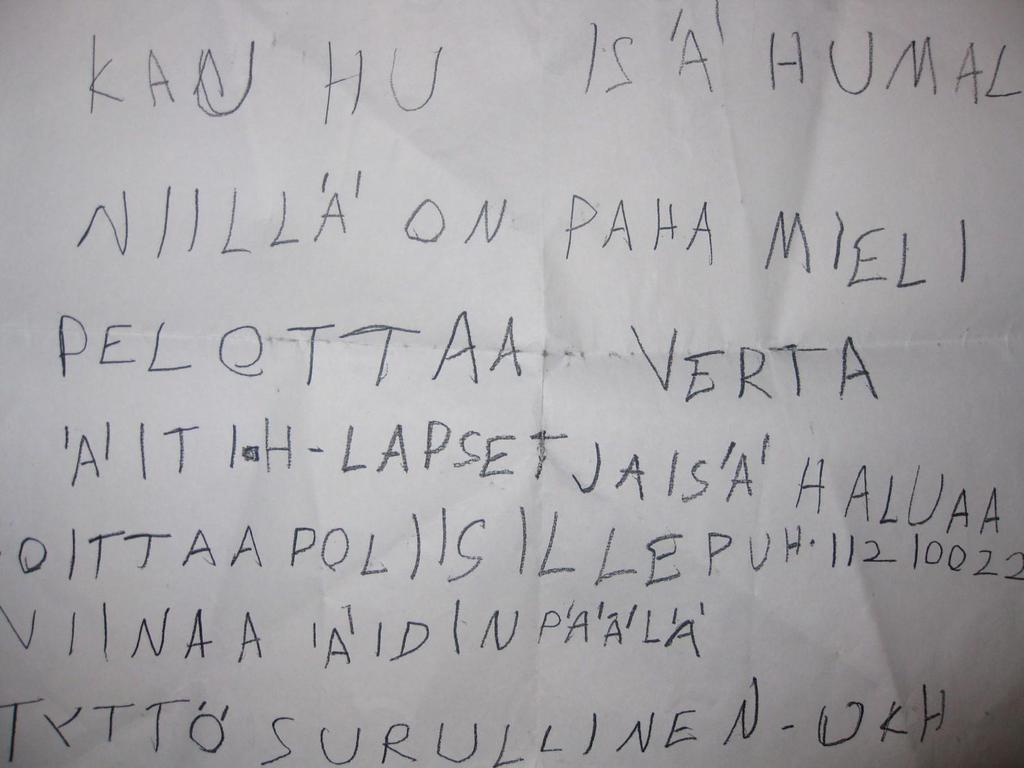 KAN HU ISÄ HUMAL
NIILLÄ ON PAHA MIELI
PELOTTAA VERTA
ÄITI H-LAPSET JA ISÄ HALUAA
OITTAA POLIISILLE PUH. 112 10022
VIINAA ÄIDIN PÄÄLÄ
TYTTÖ SURULLINEN - UKH